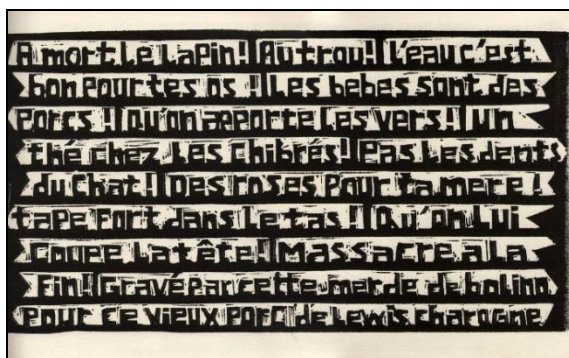 A mort Le Lapin! Au trou! L'eau c'est
bon pour tes os ! Les bebes sont des
Porcs ! Qu'on apporte Les vers ! un
thé chez Les Chibrés! Pas Les dents
du Chat ! Des roses Pour ta mere !
tape Fort dans Le tas ! Qu'on Lui
Coupe La tête ! Massacre a La
Fin! Gravé Par cette merde de bolino
Pour Ce vieux Porc de Lewis charogne